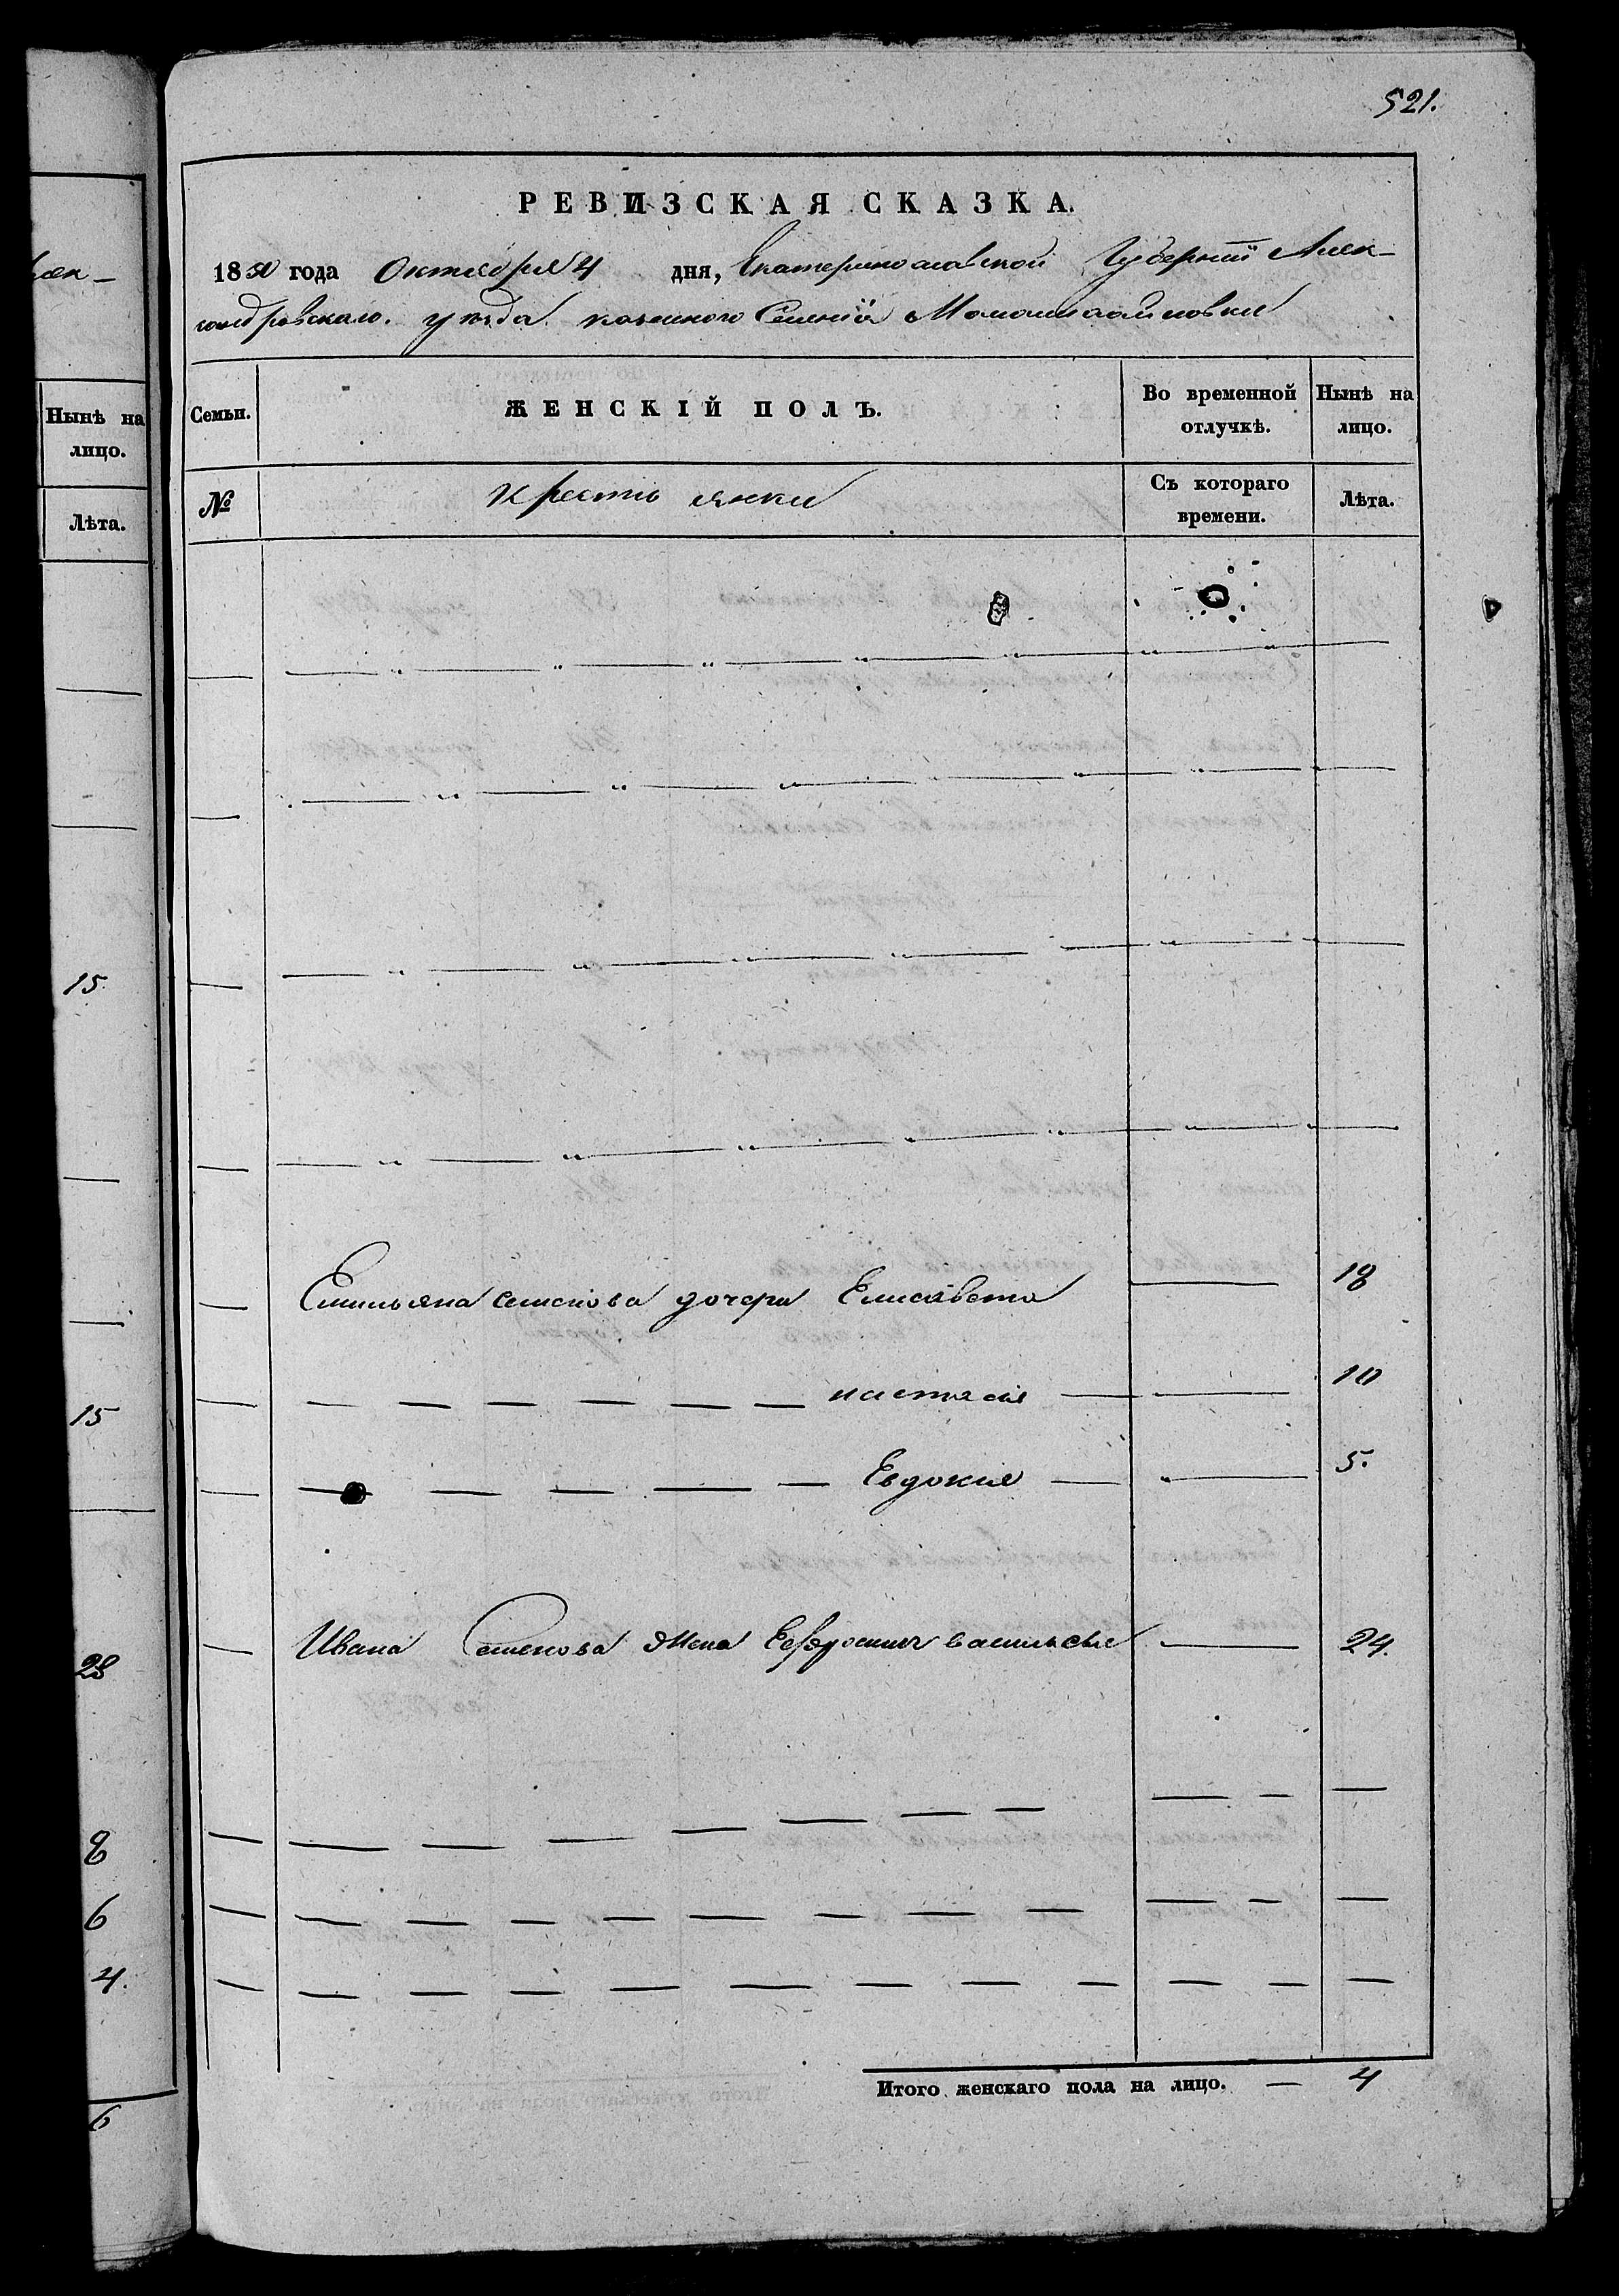 521.
РЕВИЗСКАЯ СКАЗКА.
1850 года Октября 4 дня, Екатеринославской Губерніи Алек-
сандровскаго уѣзда казенного Селенія
Семьи. ЖЕНСКІЙ ПОЛЪ. Во временной отлучкѣ. Нынѣ на лицо.
№ Крестьянки Съ котораго времени. Лѣта.
Емильяна Семенова дочери Елисавета 18
настасия 10
Евдокия 5.
Ивана Семенова жена Евфросиния васильева 24.
Итого женскаго пола на лицо. — 4
Нынѣ на
лицо.
Лѣта.
15
15
28
8
6
4.
6